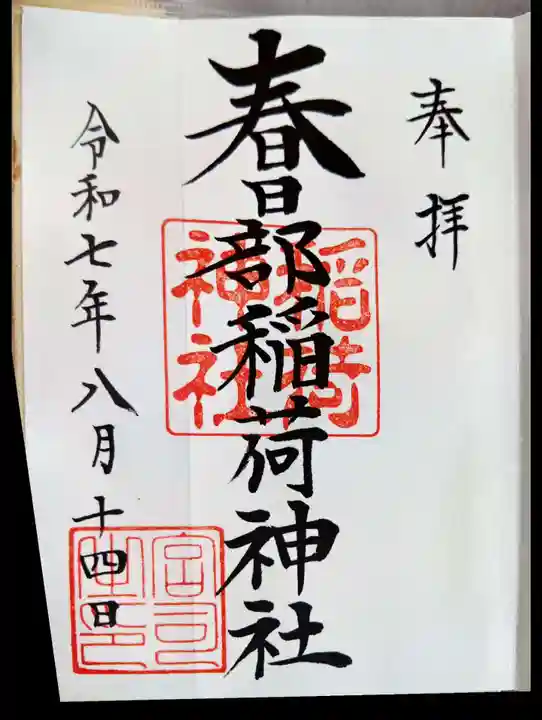 奉拝
春日部稲荷神社
稲荷
神社
令和七年八月十四日
宮司
之印